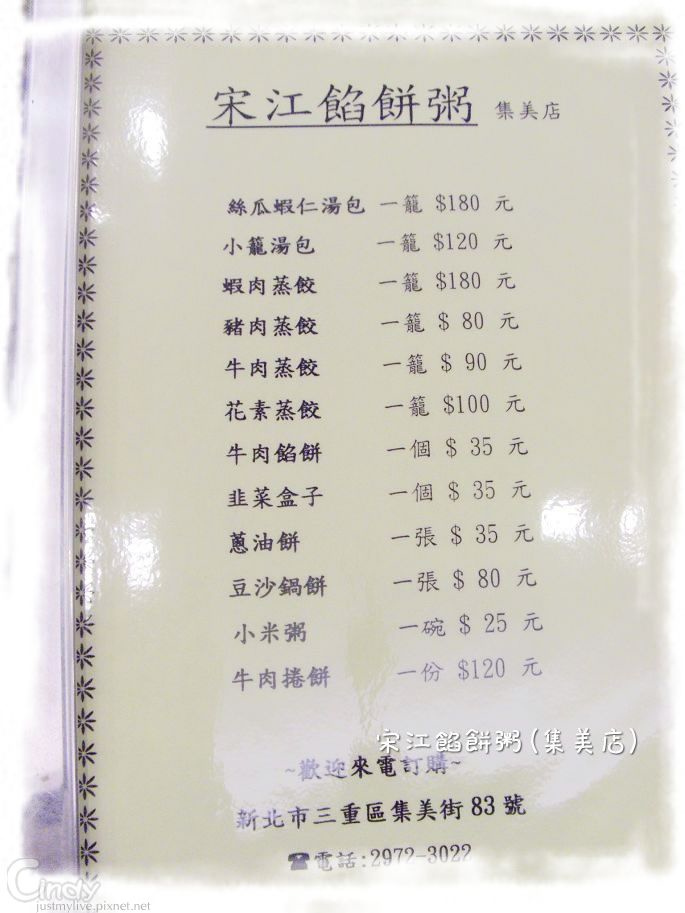 宋江餡餅粥 集美店
絲瓜蝦仁湯包 一籠 $180 元
小籠湯包 一籠 $120 元
蝦肉蒸餃 一籠 $180 元
豬肉蒸餃 一籠 $ 80 元
牛肉蒸餃 一籠 $ 90 元
花素蒸餃 一籠 $100 元
牛肉餡餅 一個 $ 35 元
韭菜盒子 一個 $ 35 元
蔥油餅 一張 $ 35 元
豆沙鍋餅 一張 $ 80 元
小米粥 一碗 $ 25 元
牛肉捲餅 一份 $120 元
宋江餡餅粥(集美店)
~歡迎來電訂購~
新北市三重區集美街 83 號
☎電話:2972-3022
Cindy
justmylive.pixnet.net